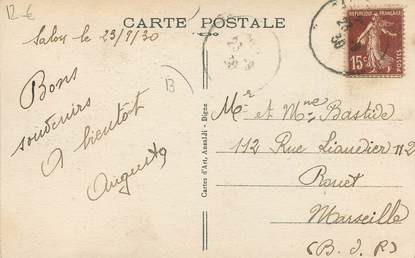 12 €
CARTE POSTALE
Salon le 23/9/30
Bons
souvenirs
A bientôt
Augusta
B
Cartes d'Art, Ansaldi - Digne
REPUBLIQUE FRANÇAISE
15c
30
Mr et Mme Bastide
112 Rue Liandier 112
Rouet
Marseille
(B. d. R)